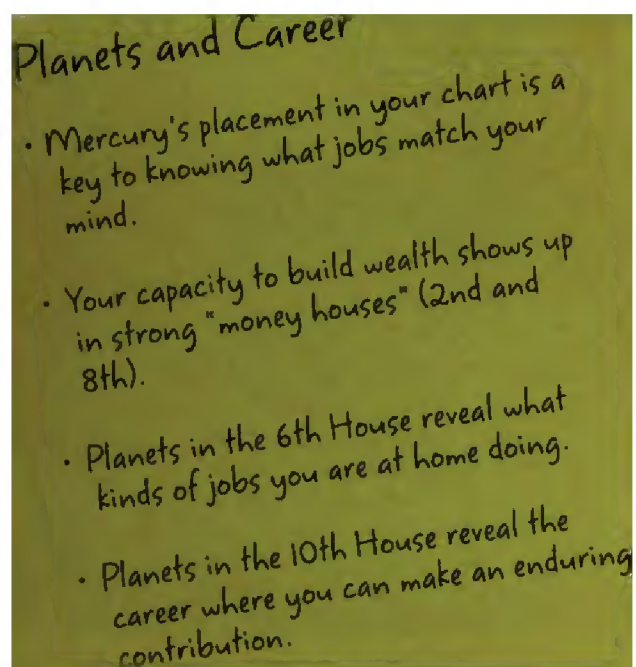 Planets and Career
• Mercury's placement in your chart is a
key to knowing what jobs match your
mind.
• Your capacity to build wealth shows up
in strong "money houses" (2nd and
8th).
• Planets in the 6th House reveal what
kinds of jobs you are at home doing.
• Planets in the 10th House reveal the
career where you can make an enduring
contribution.